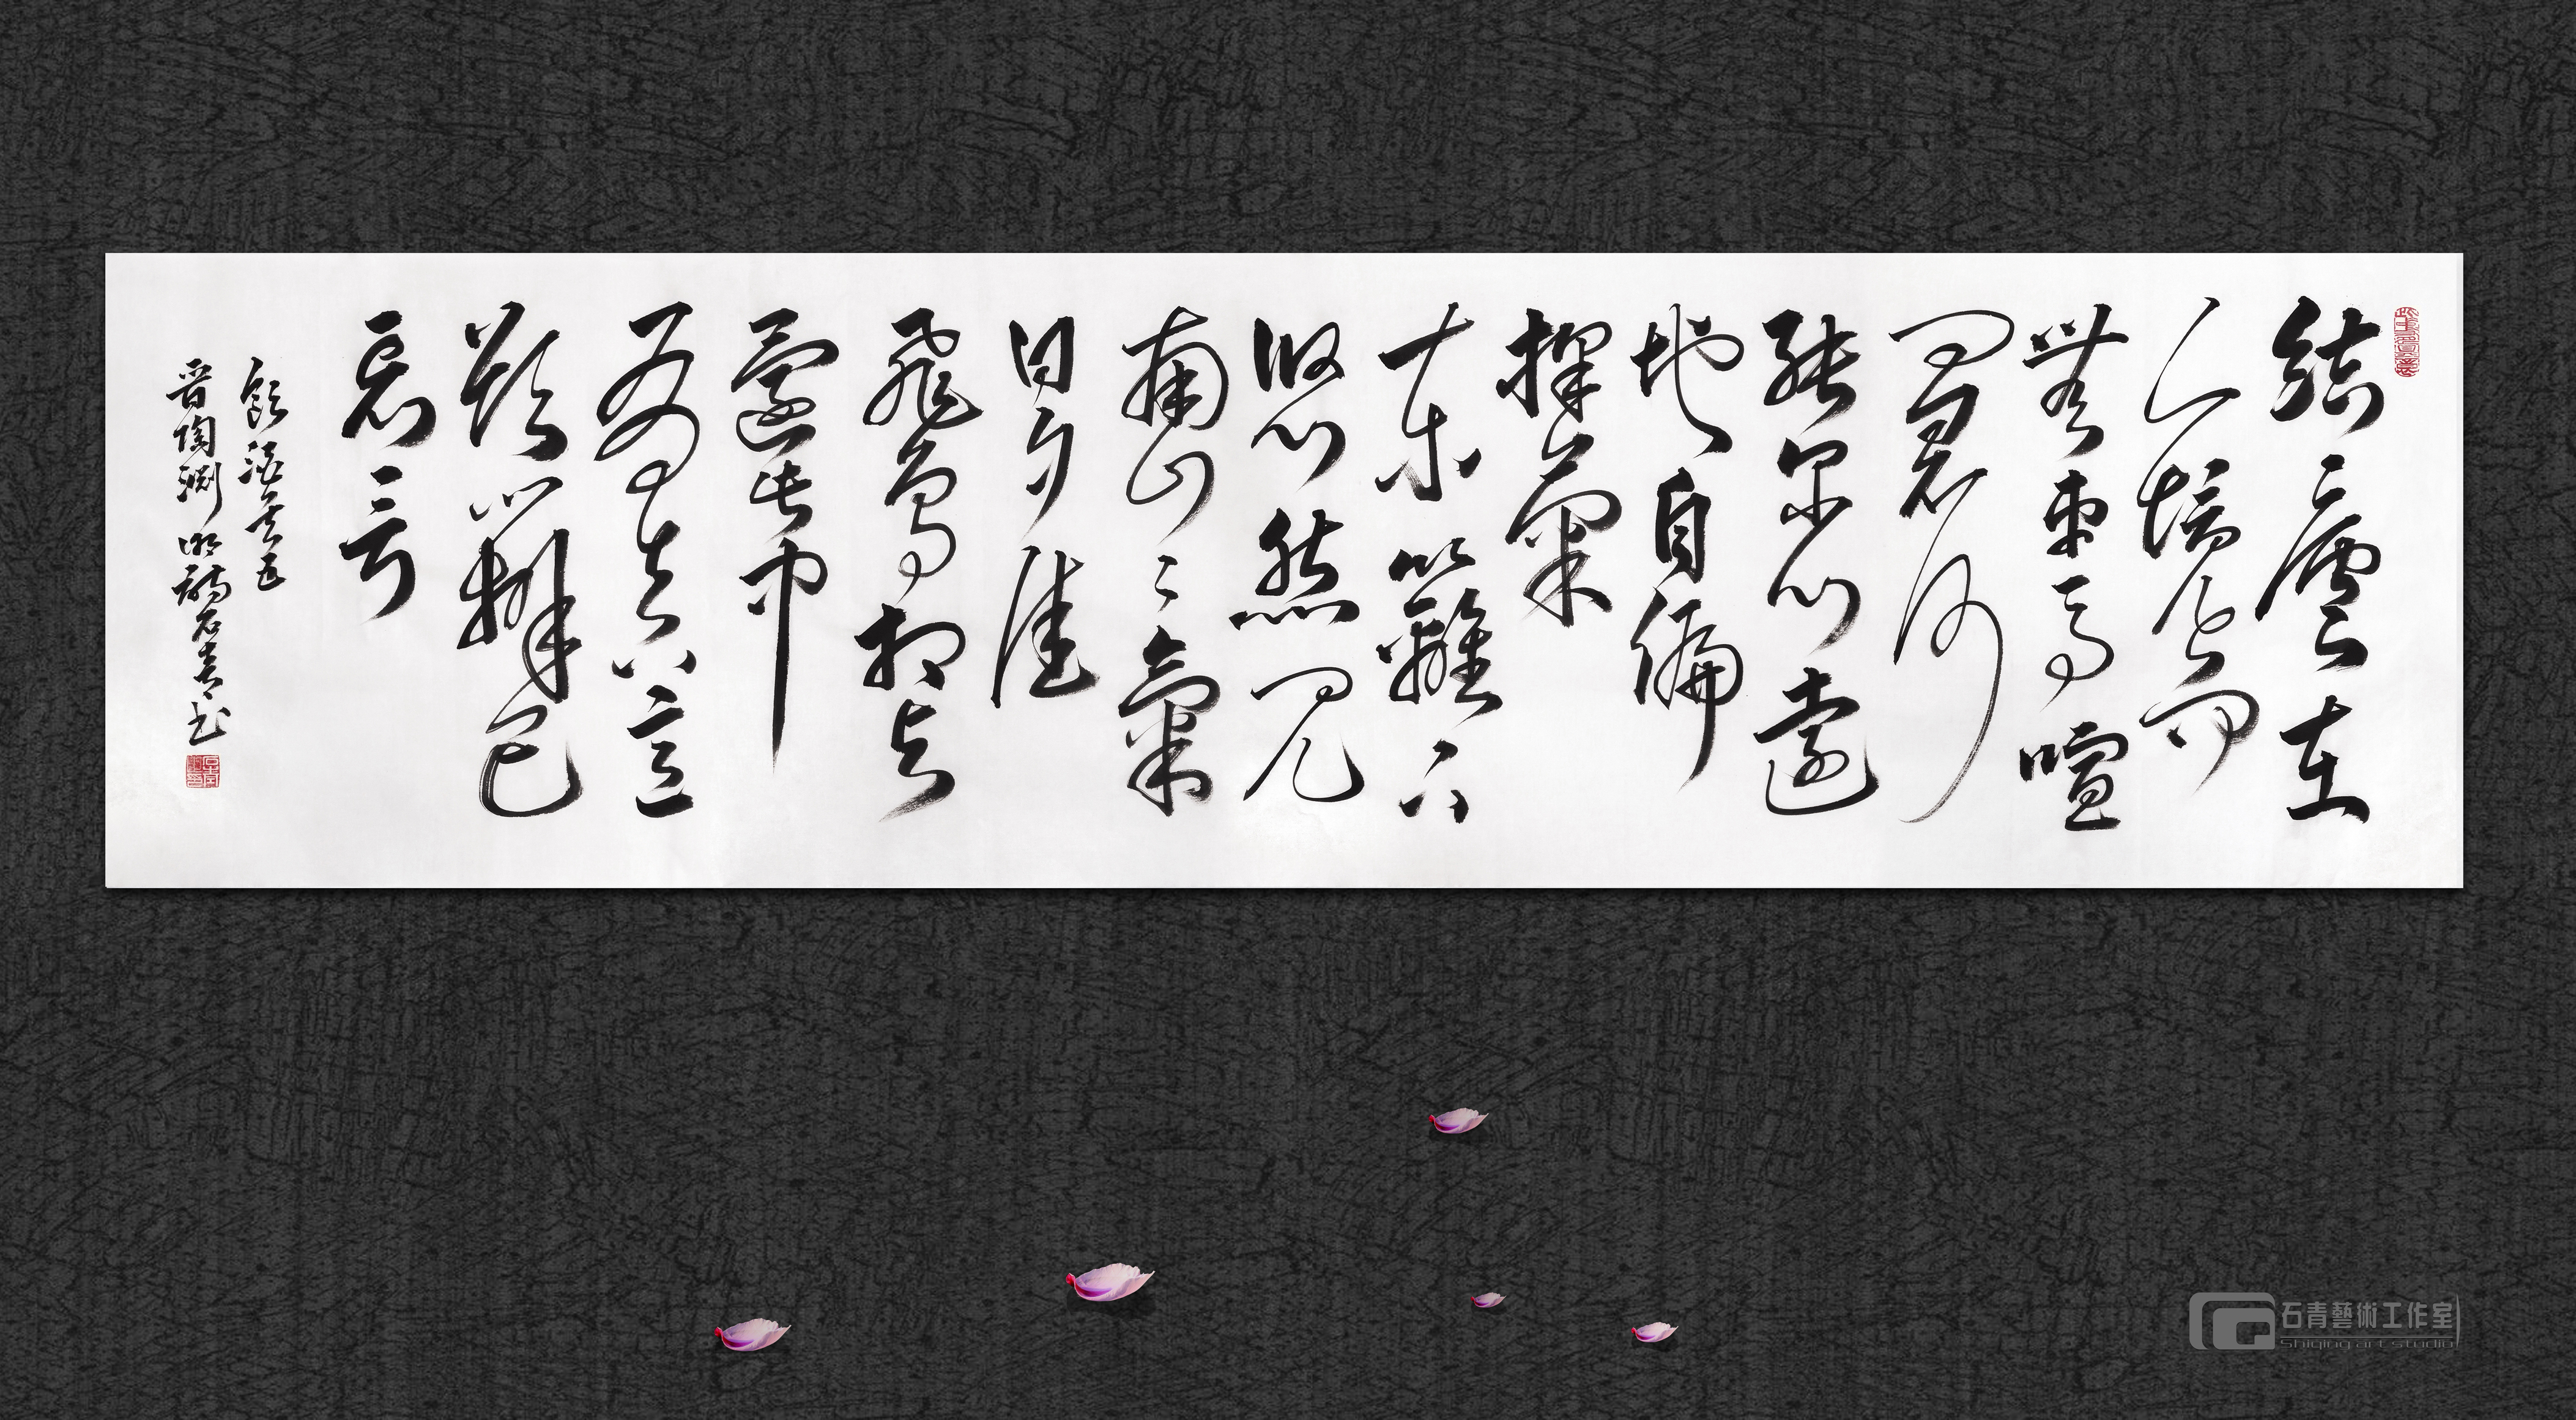 結廬在
人境而
無車馬喧
問君何
能尔心遠
地自偏
採菊
東籬下
悠然見
南山〻氣
日夕佳
飛鳥相与
還此中
有真意
欲辨已
忘言
飲酒其五
晋陶渊明詩石青书
石青藝術工作室
Shiqing art studio